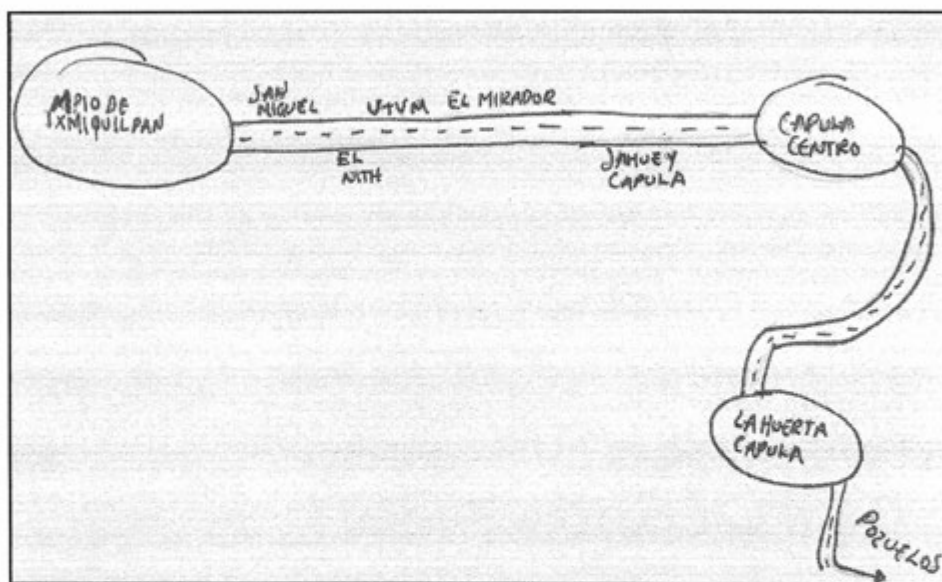 MPIO DE
IXMIQUILPAN
SAN
MIGUEL
UTVM
EL MIRADOR
EL
NITH
JAHUEY
CAPULA
CAPULA
CENTRO
LA HUERTA
CAPULA
POZUELOS